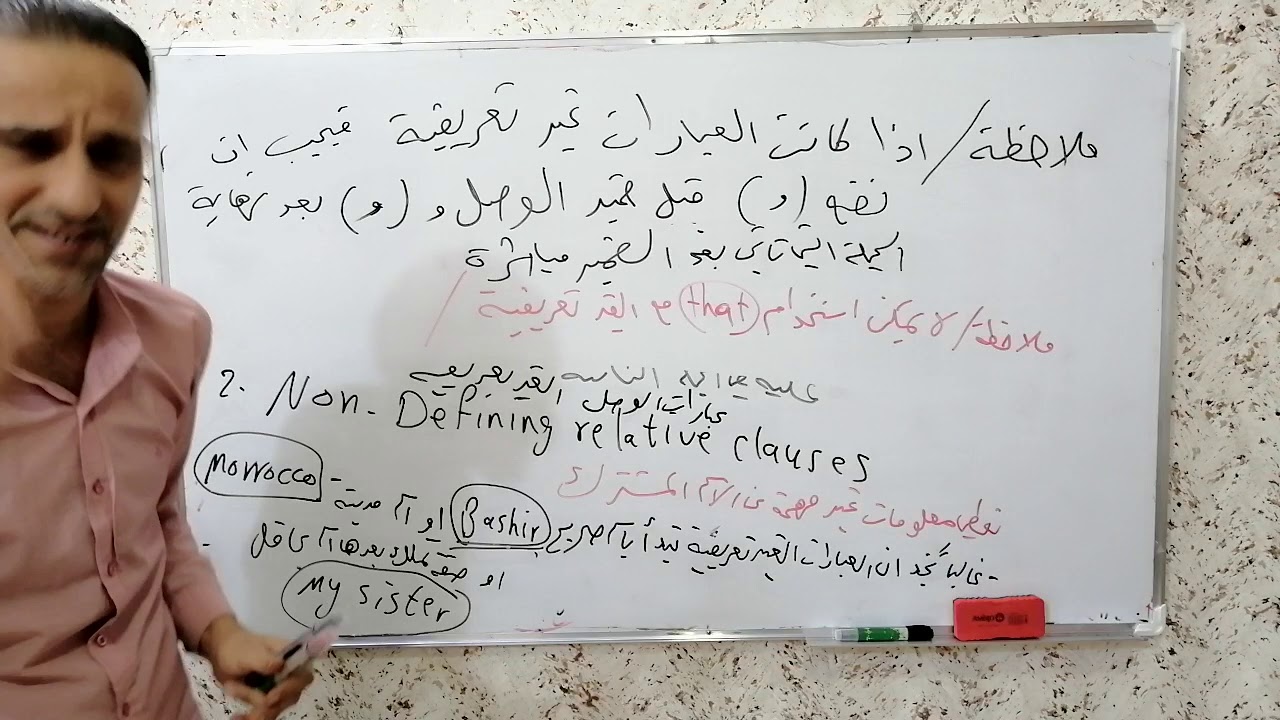 ملاحظة/ اذا كانت العبارات غير تعريفية فيجب ان
نضع (و) قبل ضمير الوصل و (و) بعد نهاية
الجملة التي تأتي بعد الضمير مباشرة
ملاحظة/ لا يمكن استخدام (that) مع الغير تعريفية /
عبارات الوصل الغير تعريفية
2. Non-Defining relative clauses
تعطي معلومات غير مهمة عن الاسم المشترك
- غالباً نجد ان العبارات الغير تعريفية تبدأ باسم صريح Bashir او اسم مدينة - Morrocco
او صفة تملك بعدها اسم عاقل
My sister